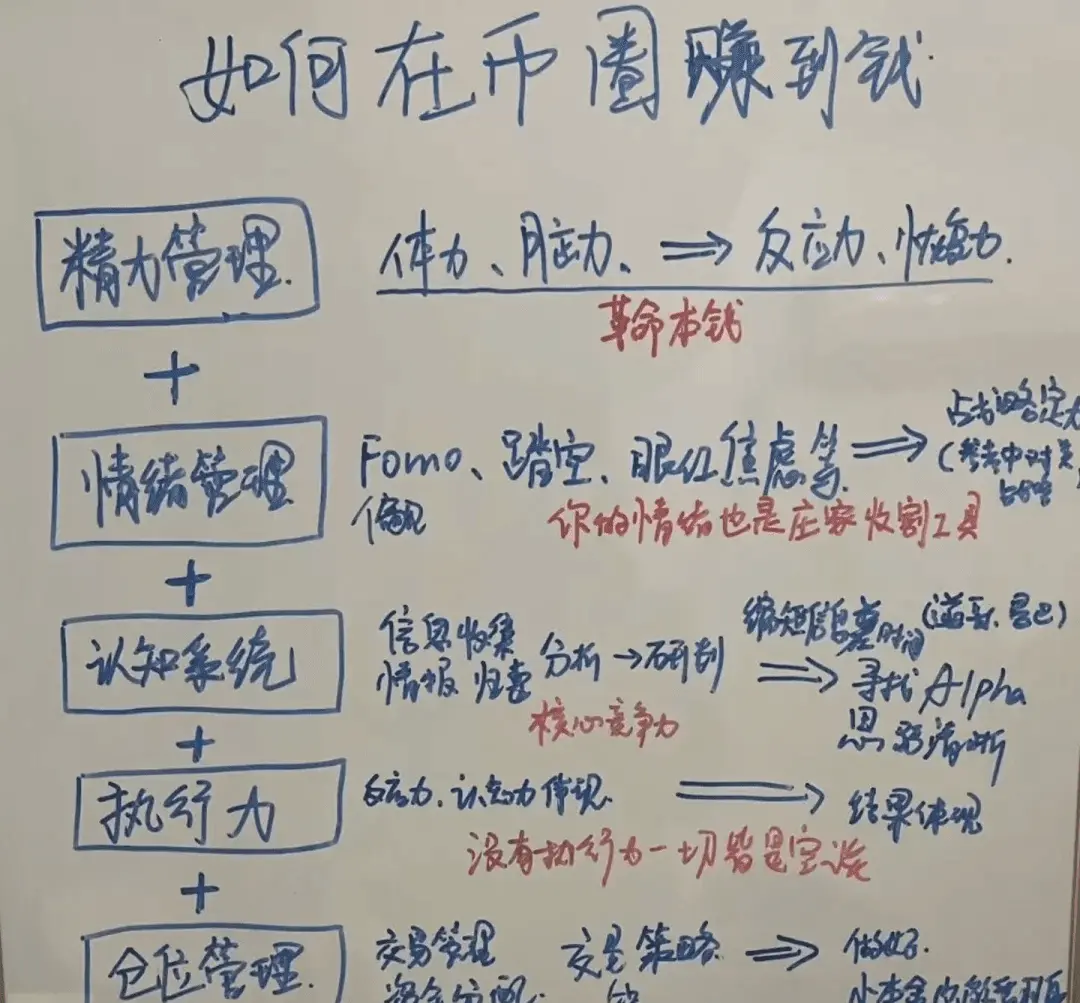 如何在币圈赚到钱
精力管理. 体力、脑力、⇒ 反应力、恢复力.
革命本钱
+
情绪管理 Fomo、踏空、眼红焦虑等. ⇒ 占战略定
偏见 (参考中对美
你的情绪也是庄家收割工具
+
认知系统 信息收集 分析→研判 ⇒ 缩短信息差时间
情报 归纳 寻找Alpha
核心竞争力 思路清晰
+
执行力 反应力、认知力体现. ⇒ 结果体现
没有执行力一切皆是空谈
+
仓位管理. 交易管理 交易策略 ⇒ 做好.
资金分配.